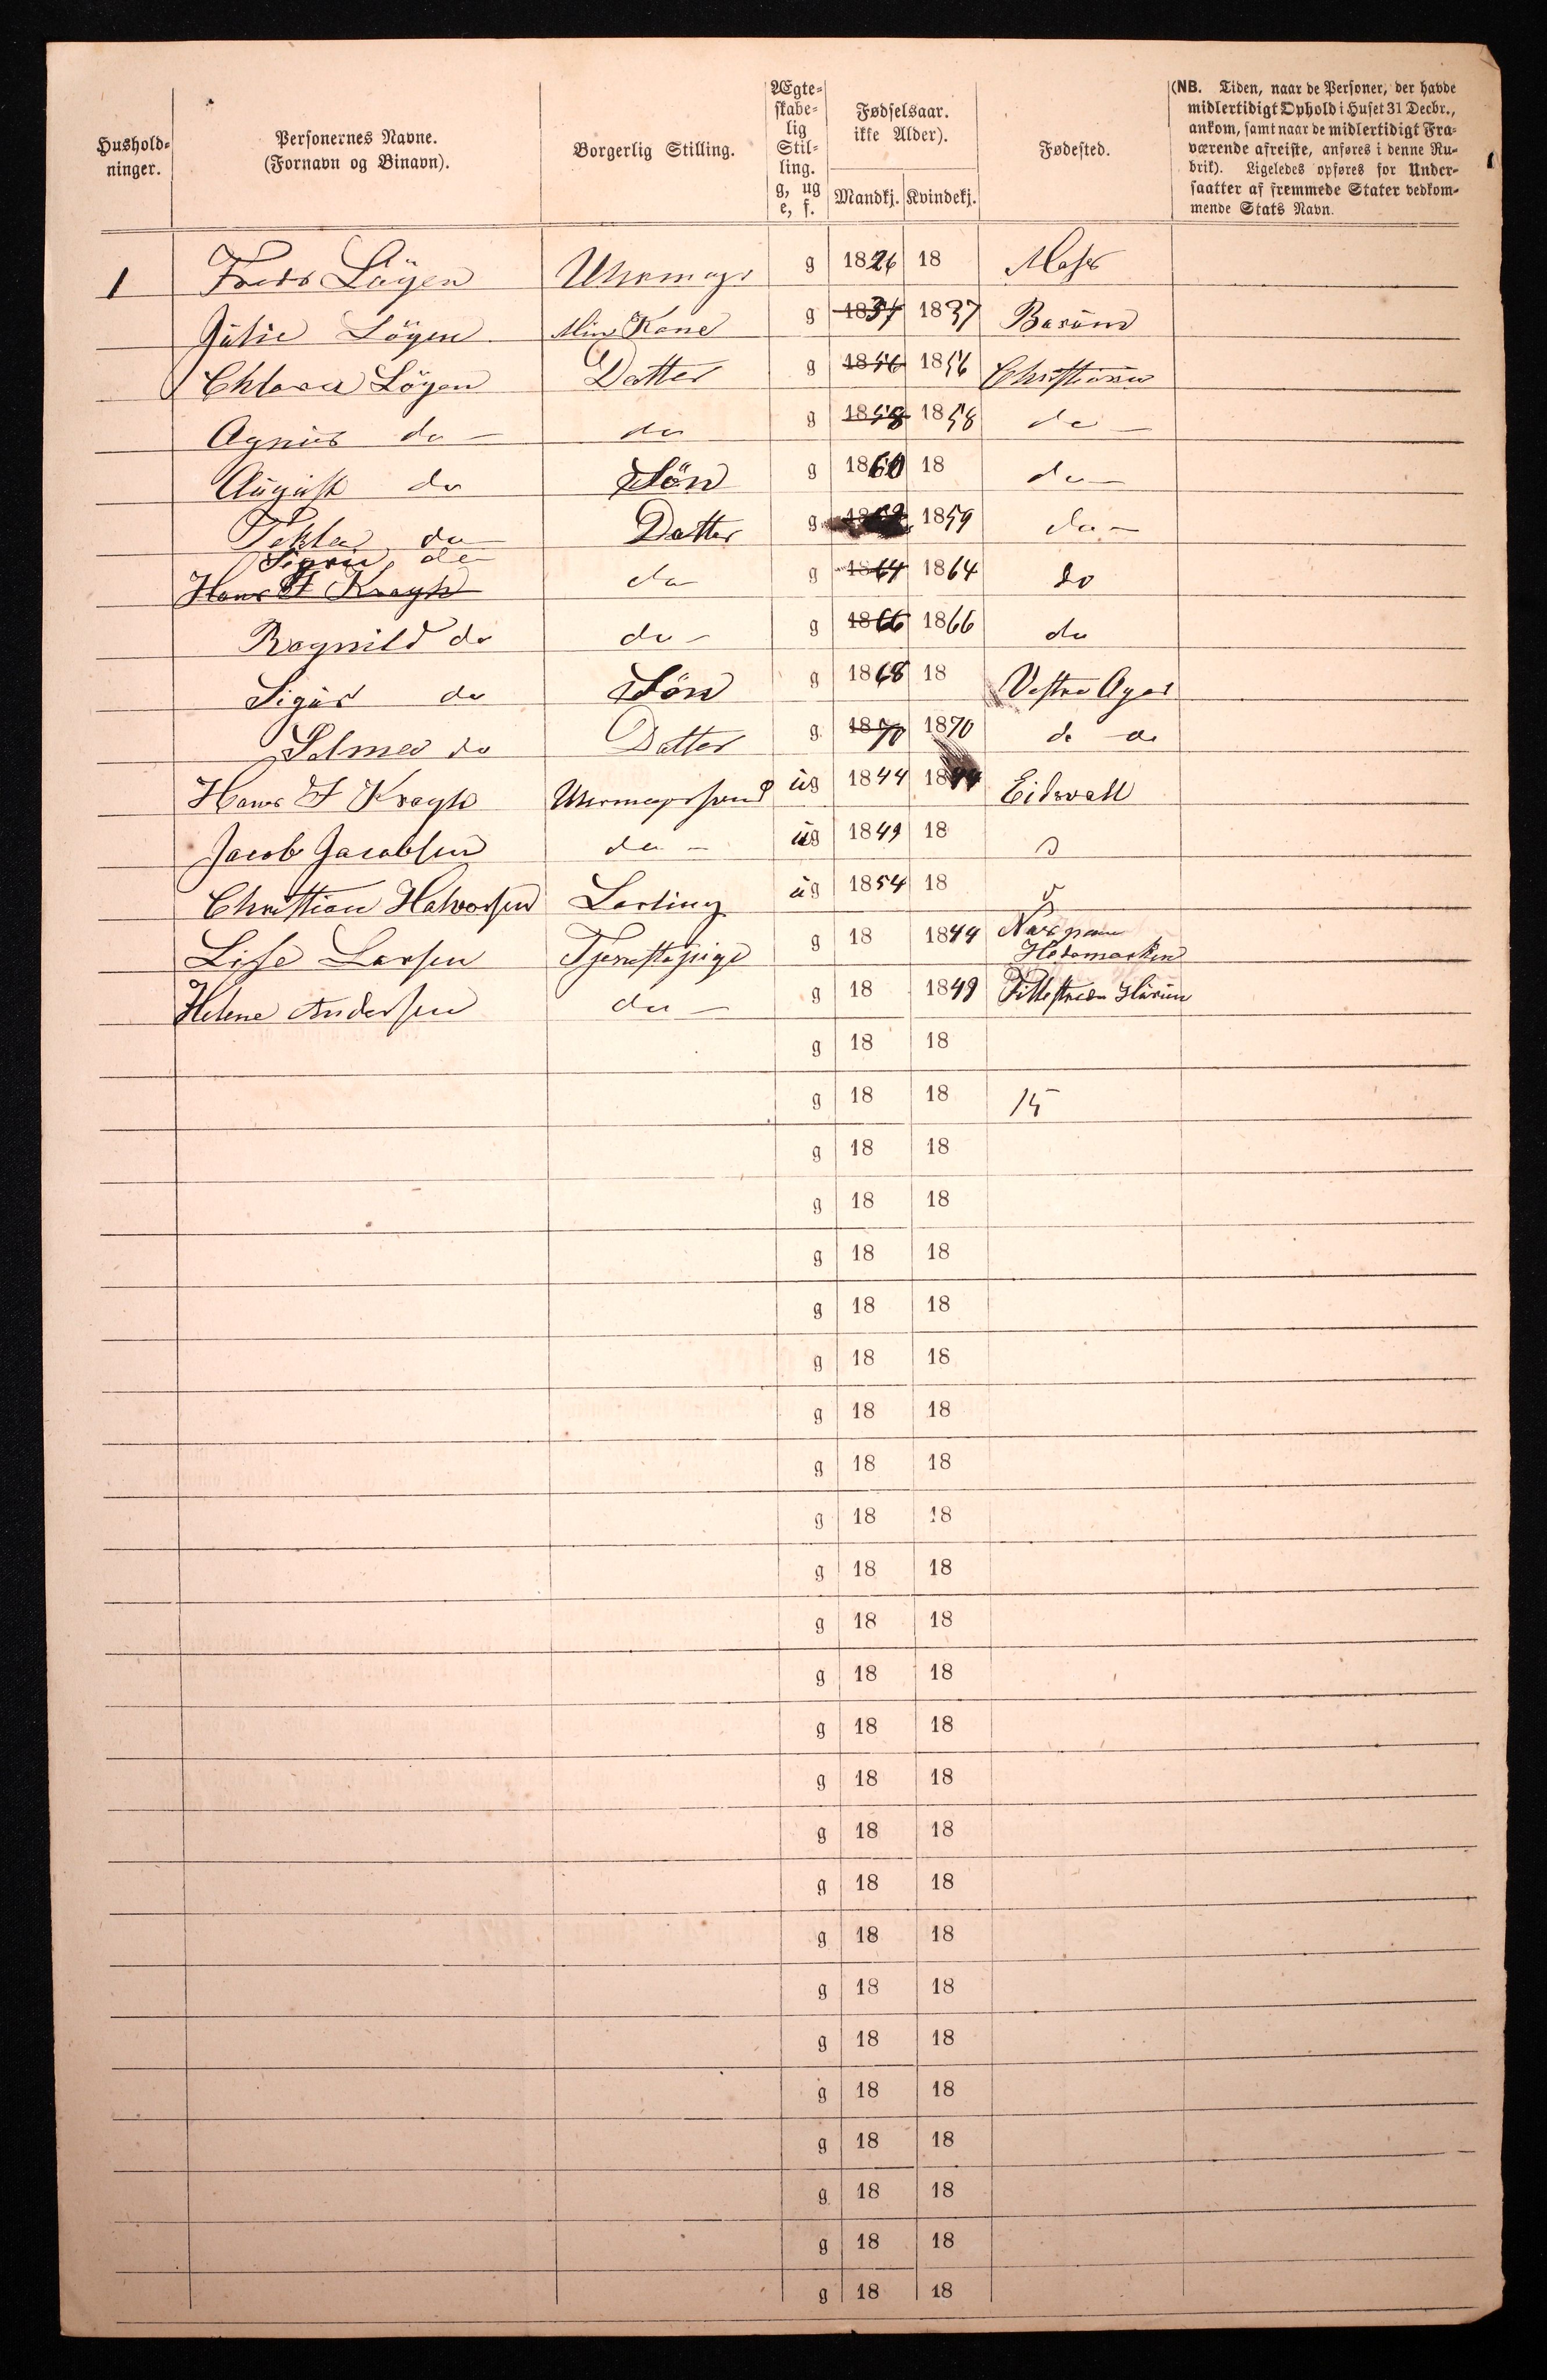 Hushold-
ninger.
Personernes Navne.
(Fornavn og Binavn).
Borgerlig Stilling.
Ægte-
skabe-
lig
Stil-
ling.
g, ug
e, f.
Fødselsaar.
ikke Alder).
Mandkj. Kvindekj.
Fødested.
(NB. Tiden, naar de Personer, der havde
midlertidigt Ophold i Huset 31 Decbr.,
ankom, samt naar de midlertidigt Fra-
værende afreiste, anføres i denne Ru-
brik). Ligeledes opføres for Under-
saatter af fremmede Stater vedkom-
mende Stats Navn.
1 Fredr Lögen Uhrmagr g 1826 18 Moss
Julie Lögen Min Kone g 1837 1837 Barum
Chlara Lögen Datter g 1856 1856 Christiania
Agnes do do g 1858 1858 do
August do Sön g 1860 18 do
Tekla do Datter g 1859 do
Sigrid do
Hans F Kragh do g 1864 1864 do
Ragnild do do g 1866 1866 do
Sigur do Sön g 1868 18 Vestre Ager
Selma do Datter g 1870 1870 do do
Hans F Kragh Uhrmagersvend ug 1844 1844 Eidsvall
Jacob Jacobsen do ug 1849 18
Christian Halvorsen Lærling ug 1854 18
Lise Larsen Tjenestepige g 18 1844
Hedemarken
Helene Andersen do g 18 1849
g 18 18
g 18 18 15
g 18 18
g 18 18
g 18 18
g 18 18
g 18 18
g 18 18
g 18 18
g 18 18
g 18 18
g 18 18
g 18 18
g 18 18
g 18 18
g 18 18
g 18 18
g 18 18
g 18 18
g 18 18
g 18 18
g 18 18
g 18 18
g 18 18
g 18 18